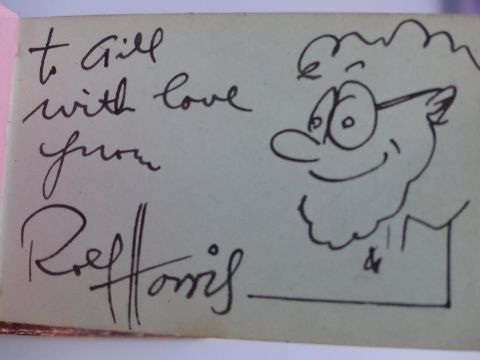 to Gill
with love
from
Rolf Harris